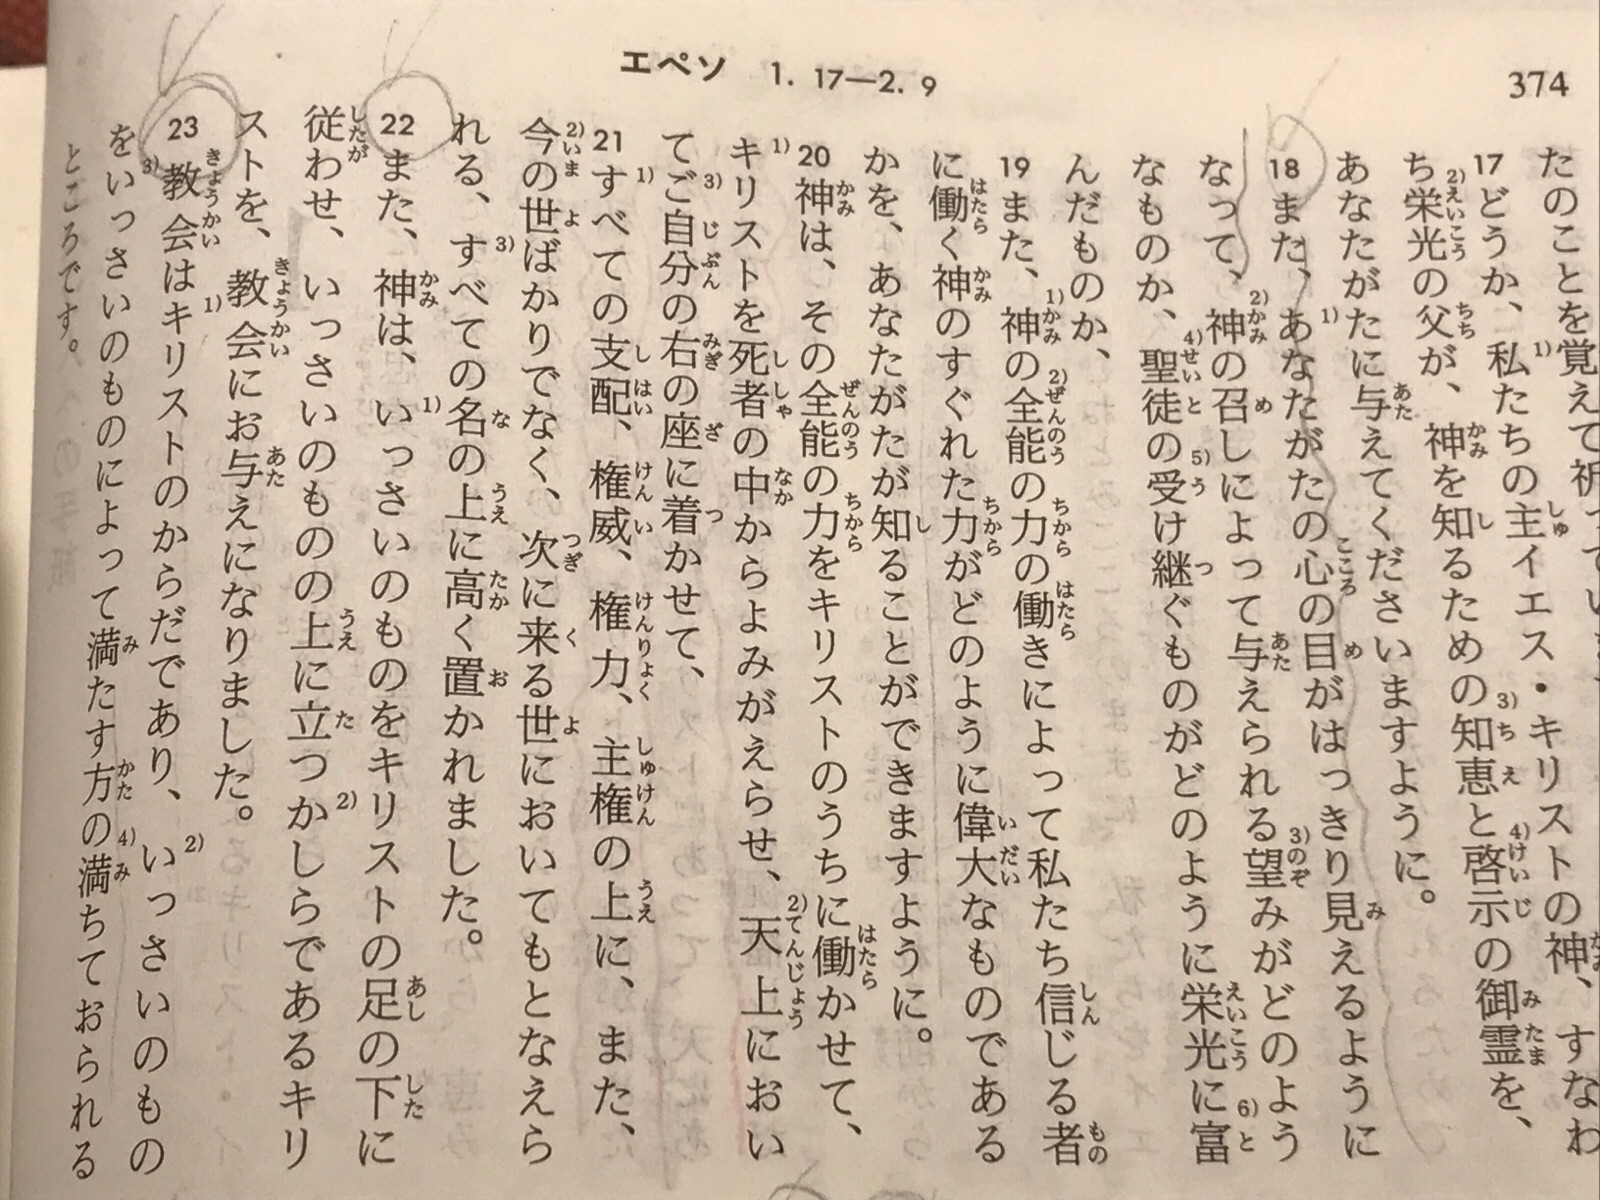 エペソ 1. 17—2. 9
374
たのことを覚えて祈って
17 どうか、1)私たちの主イエス・キリストの神、すなわ
ち2)栄光の父が、神を知るための3)知恵と4)啓示の御霊を、
あなたがたに与えてくださいますように。
18 また、1)あなたがたの心の目がはっきり見えるように
なって、2)神の召しによって与えられる3)望みがどのよう
なものか、4)聖徒の5)受け継ぐものがどのように栄光に6)富
んだものか、
19 また、1)神の2)全能の力の働きによって私たち信じる者
に働く神のすぐれた力がどのように偉大なものである
かを、あなたがたが知ることができますように。
20 神は、その全能の力をキリストのうちに働かせて、
1)キリストを死者の中からよみがえらせ、2)天上におい
て3)ご自分の右の座に着かせて、
21 1)すべての支配、権威、権力、主権の上に、また、
2)今の世ばかりでなく、次に来る世においてもとなえら
れる、3)すべての名の上に高く置かれました。
22 また、神は、1)いっさいのものをキリストの足の下に
従わせ、いっさいのものの上に立つ2)かしらであるキリ
ストを、教会にお与えになりました。
23 3)教会は1)キリストのからだであり、2)いっさいのもの
をいっさいのものによって満たす方の4)満ちておられる
ところです。